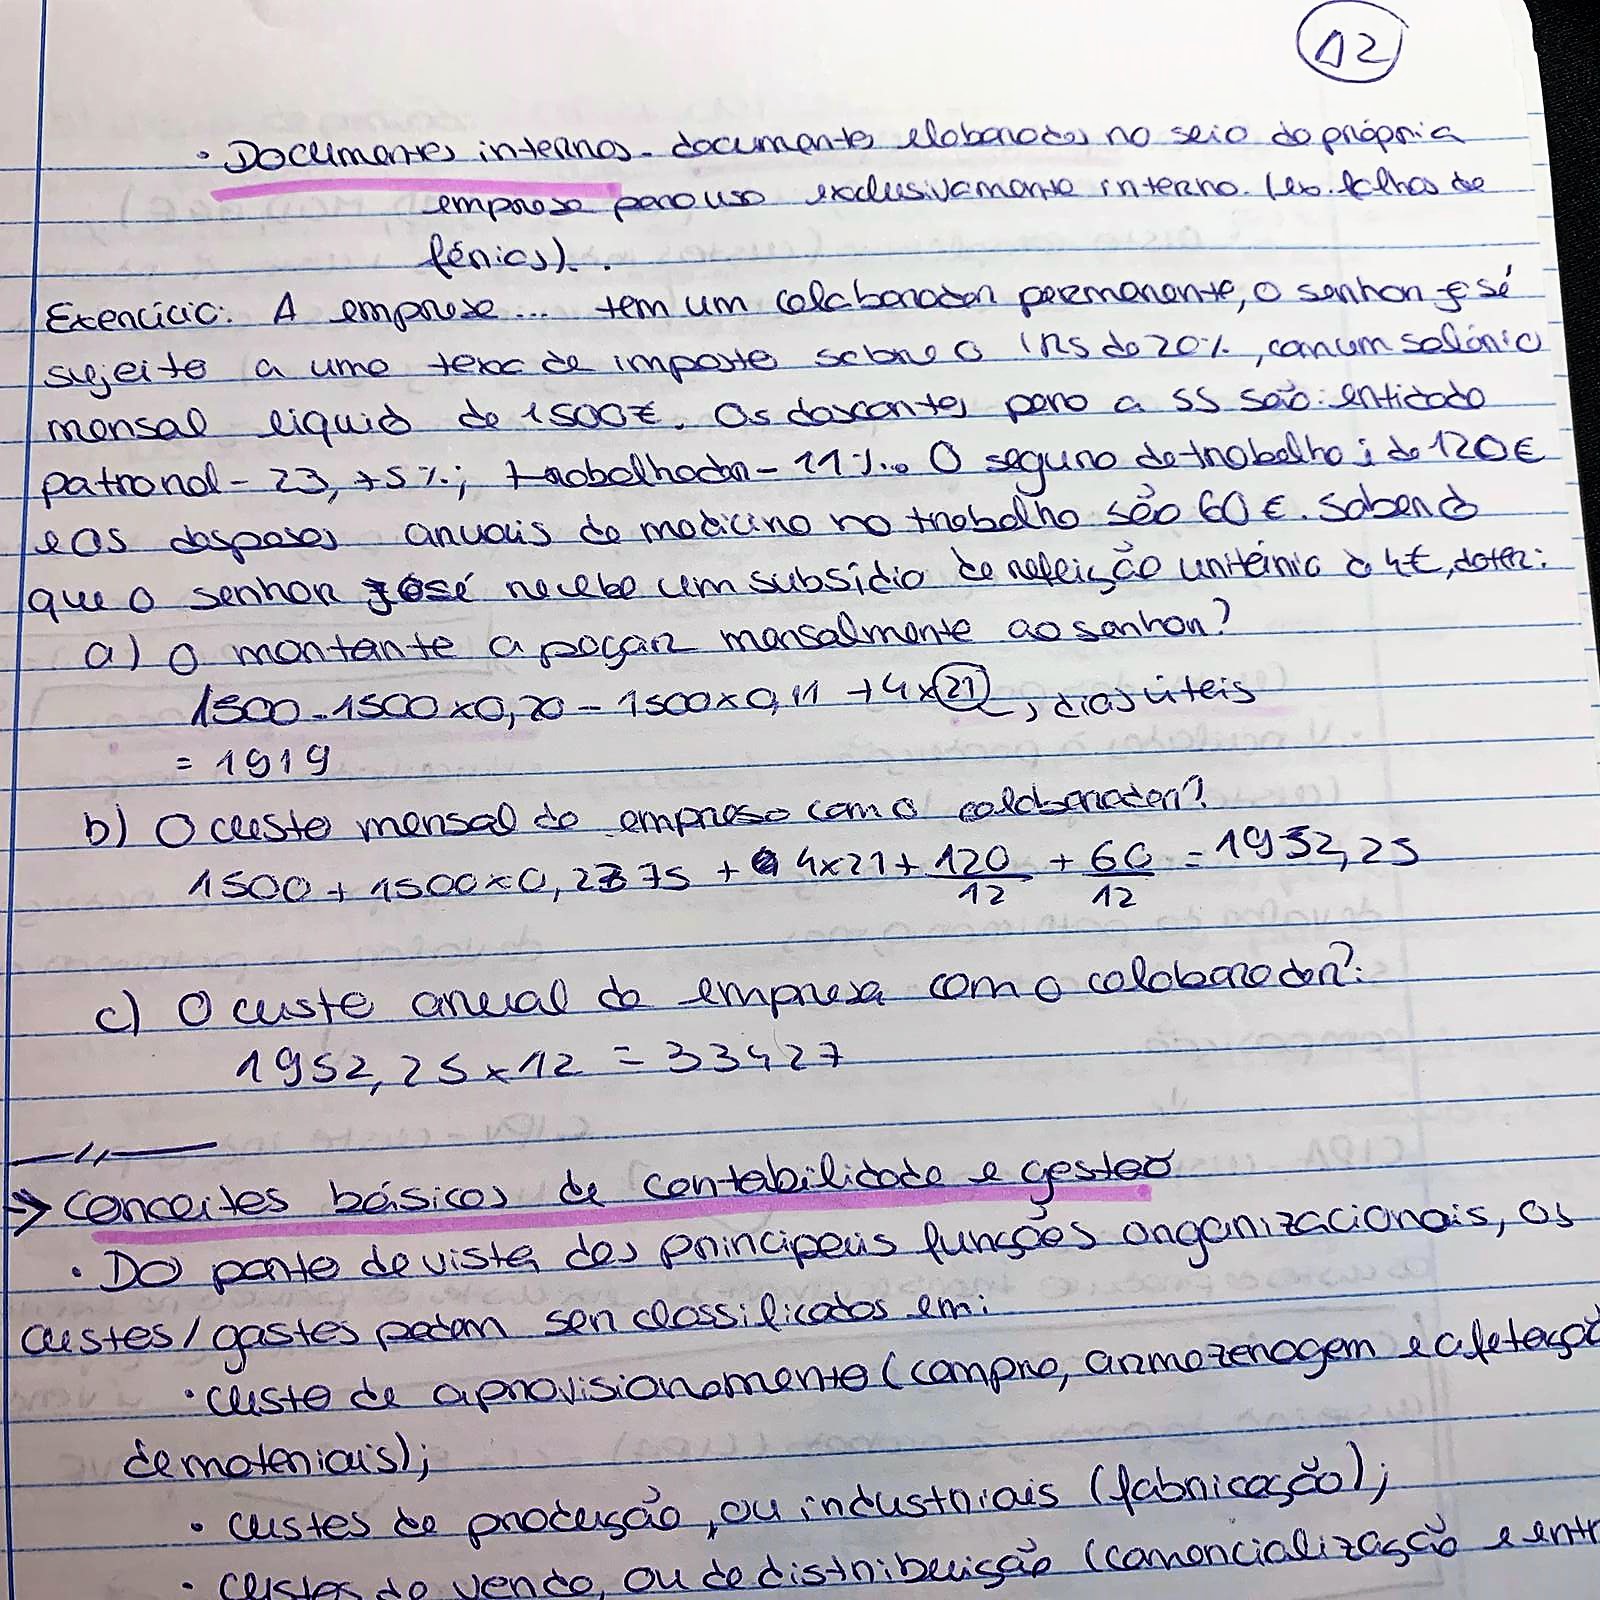 12
• Documentos internos - documentos elaborados no seio da própria
empresa para uso exclusivamente interno. (ex. folhas de
férias).
Exercício: A empresa ... tem um colaborador permanente, o senhor José
sujeito a uma taxa de imposto sobre o IRS de 20%, com um salário
mensal liquido de 1500€. Os descontos para a SS são: entidade
patronal - 23,75%; trabalhador - 11%. O seguro de trabalho é de 120€
e as despesas anuais de medicina no trabalho são 60€. Sabendo
que o senhor José recebe um subsídio de refeição unitário de 4€, deter:
a) O montante a pagar mensalmente ao senhor?
1500 - 1500 x 0,20 - 1500 x 0,11 + 4 x 21, dias úteis
= 1919
b) O custo mensal da empresa com o colaborador?
1500 + 1500 x 0,2375 + 4x21 + 120/12 + 60/12 = 1952,25
c) O custo anual da empresa com o colaborador?
1952,25 x 12 = 33427
—,,—
→ Conceitos básicos de contabilidade e gestão
• Do ponto de vista das principais funções organizacionais, os
custos/gastos podem ser classificados em:
• custo de aprovisionamento (compra, armazenagem e afetação
de materiais);
• custos de produção, ou industriais (fabricação);
• custos de venda, ou de distribuição (comercialização e entr